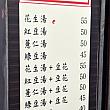 花生湯 55
紅豆湯 50
薏仁湯 50
綠豆湯 45
花生湯+豆花 55
紅豆湯+豆花 50
薏仁湯+豆花 50
綠豆湯+豆花 45